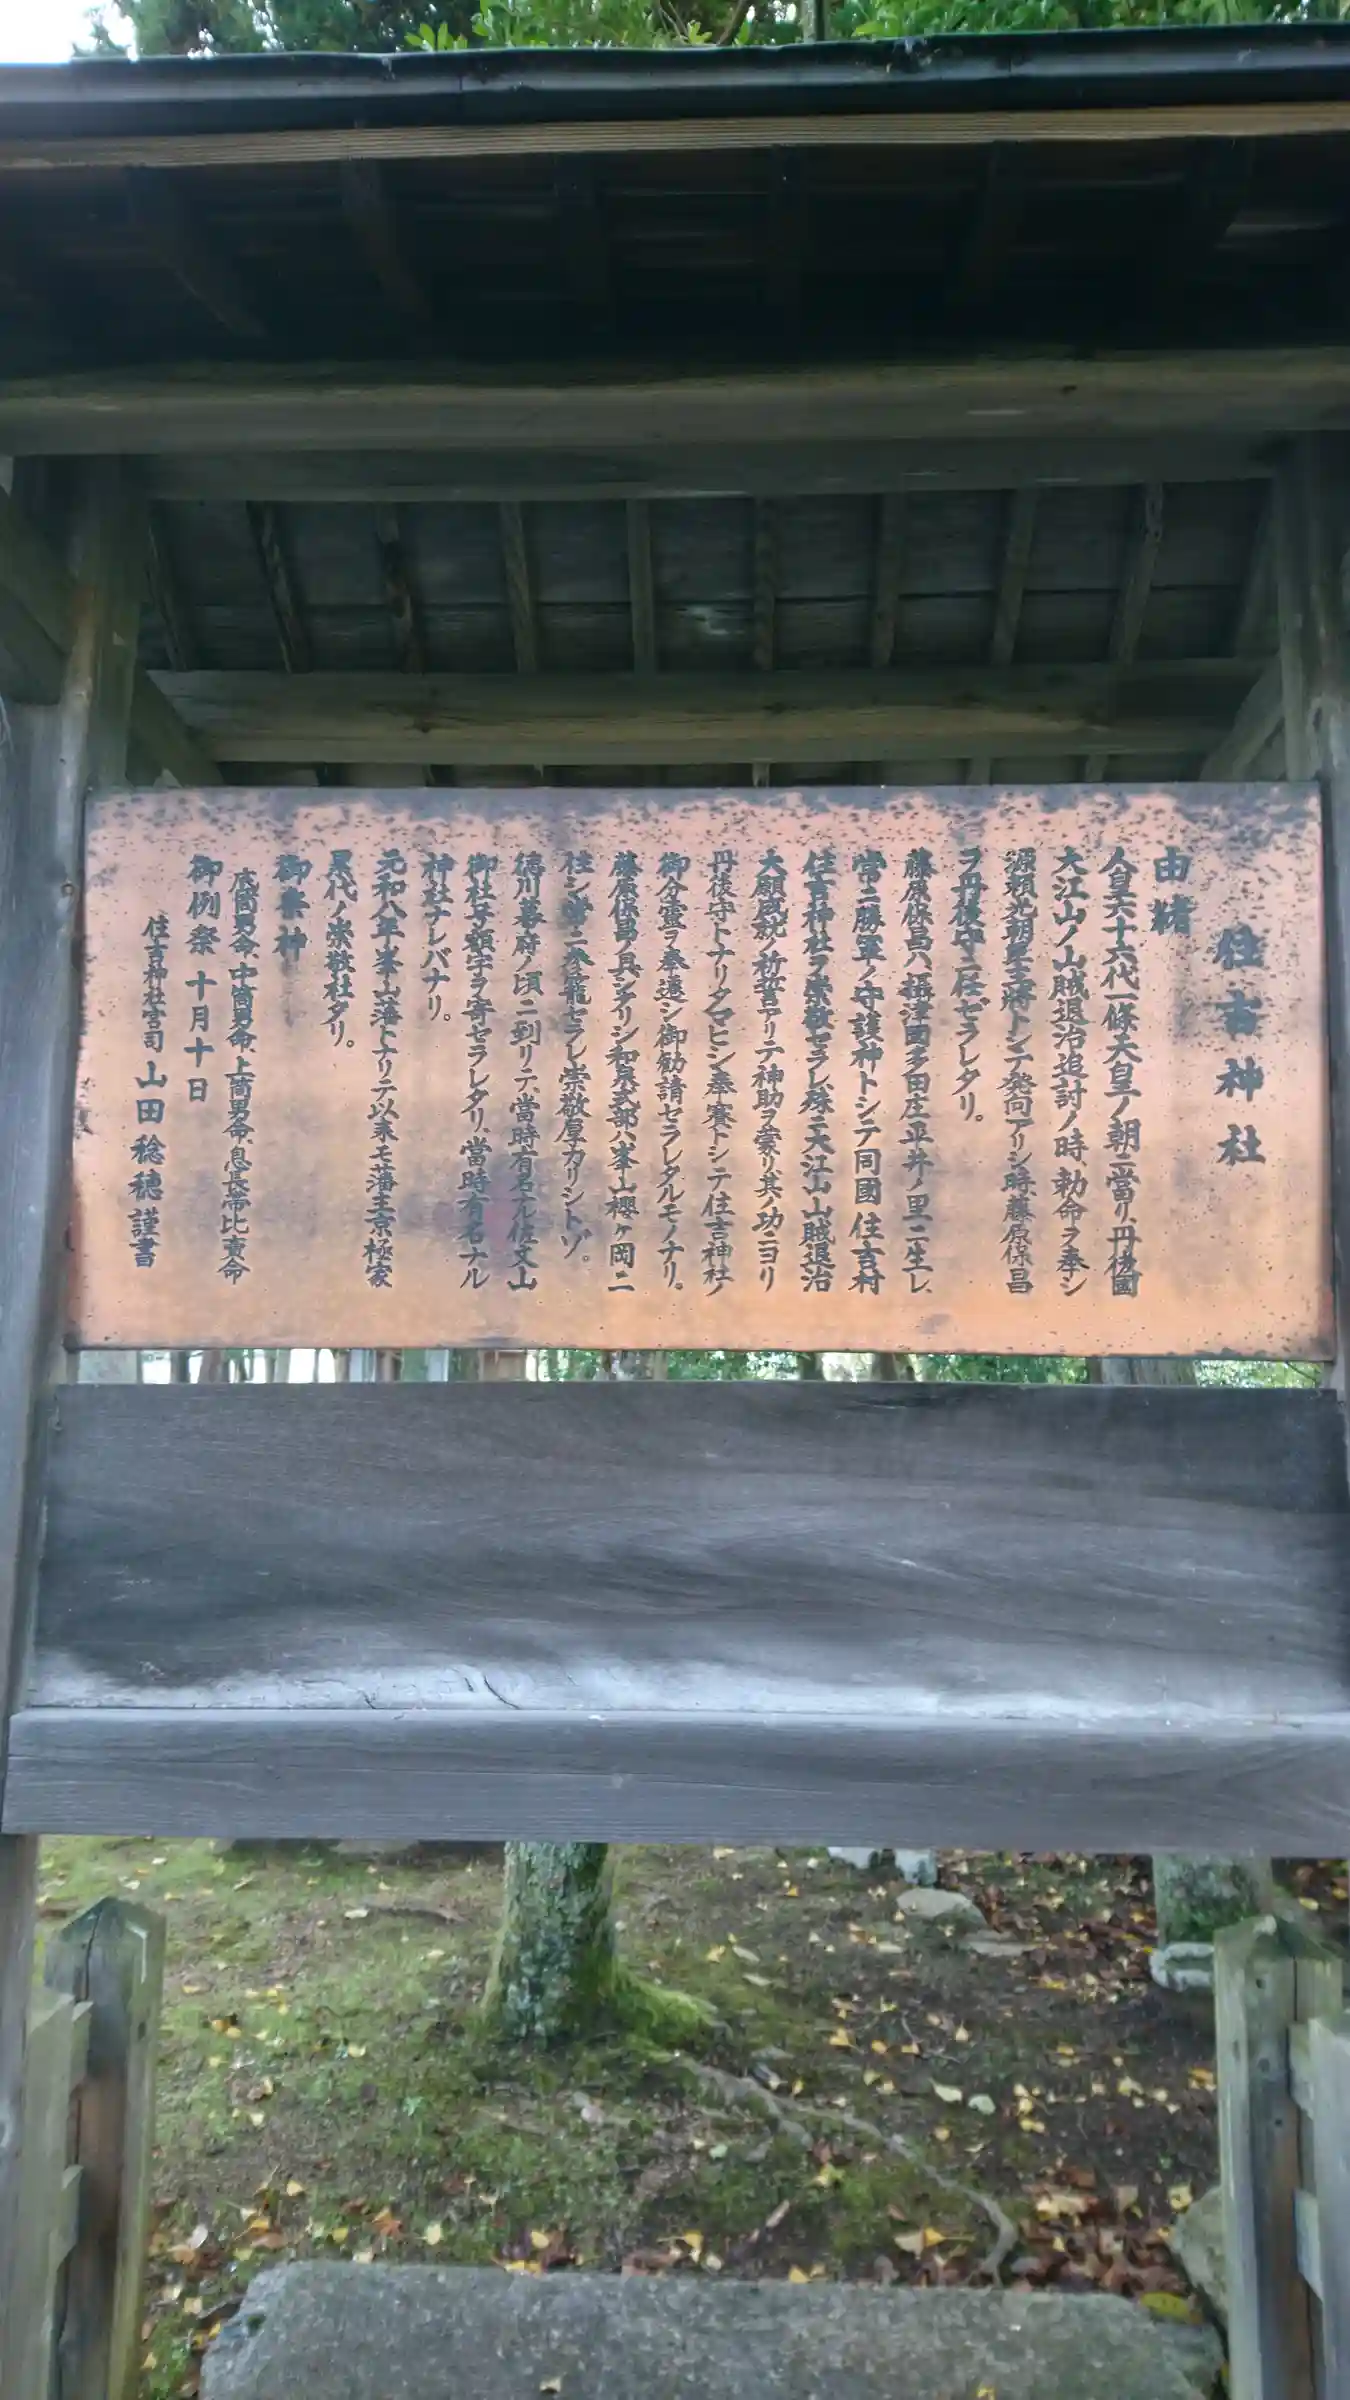 住吉神社
由緒
人皇六十六代一條天皇ノ朝ニ當リ、丹後國
大江山ノ山賊退治追討ノ時、勅命ヲ奉シ
源頼光朝臣主将トシテ発向アリシ時、藤原保昌
ヲ丹後守ニ任ゼラレタリ。
藤原保昌ハ、摂津國多田庄平井ノ里ニ生レ、
常ニ勝軍ノ守護神トシテ同國住吉村
住吉神社ヲ崇敬セラレ、殊ニ大江山山賊退治
大願成就ノ祈誓アリテ神助ヲ蒙リ其ノ功ニヨリ
丹後守トナリタマヒシ奉賽トシテ住吉神社ノ
御分霊ヲ奉遷シ御勧請セラレタルモノナリ。
藤原保昌ノ具シタリシ和泉式部ハ峯山櫻ヶ岡ニ
住シ常ニ参籠セラレ崇敬厚カリシトゾ。
徳川幕府ノ頃ニ到リテ、當時有名ナル佐文山
御社号額字ヲ寄セラレタリ、當時有名ナル
神社ナレバナリ。
元和八年峯山藩トナリテ以来モ藩主京極家
累代ノ崇敬社タリ。
御祭神
底筒男命、中筒男命、上筒男命、息長帯比売命
御例祭 十月十日
住吉神社宮司 山田稔穂謹書